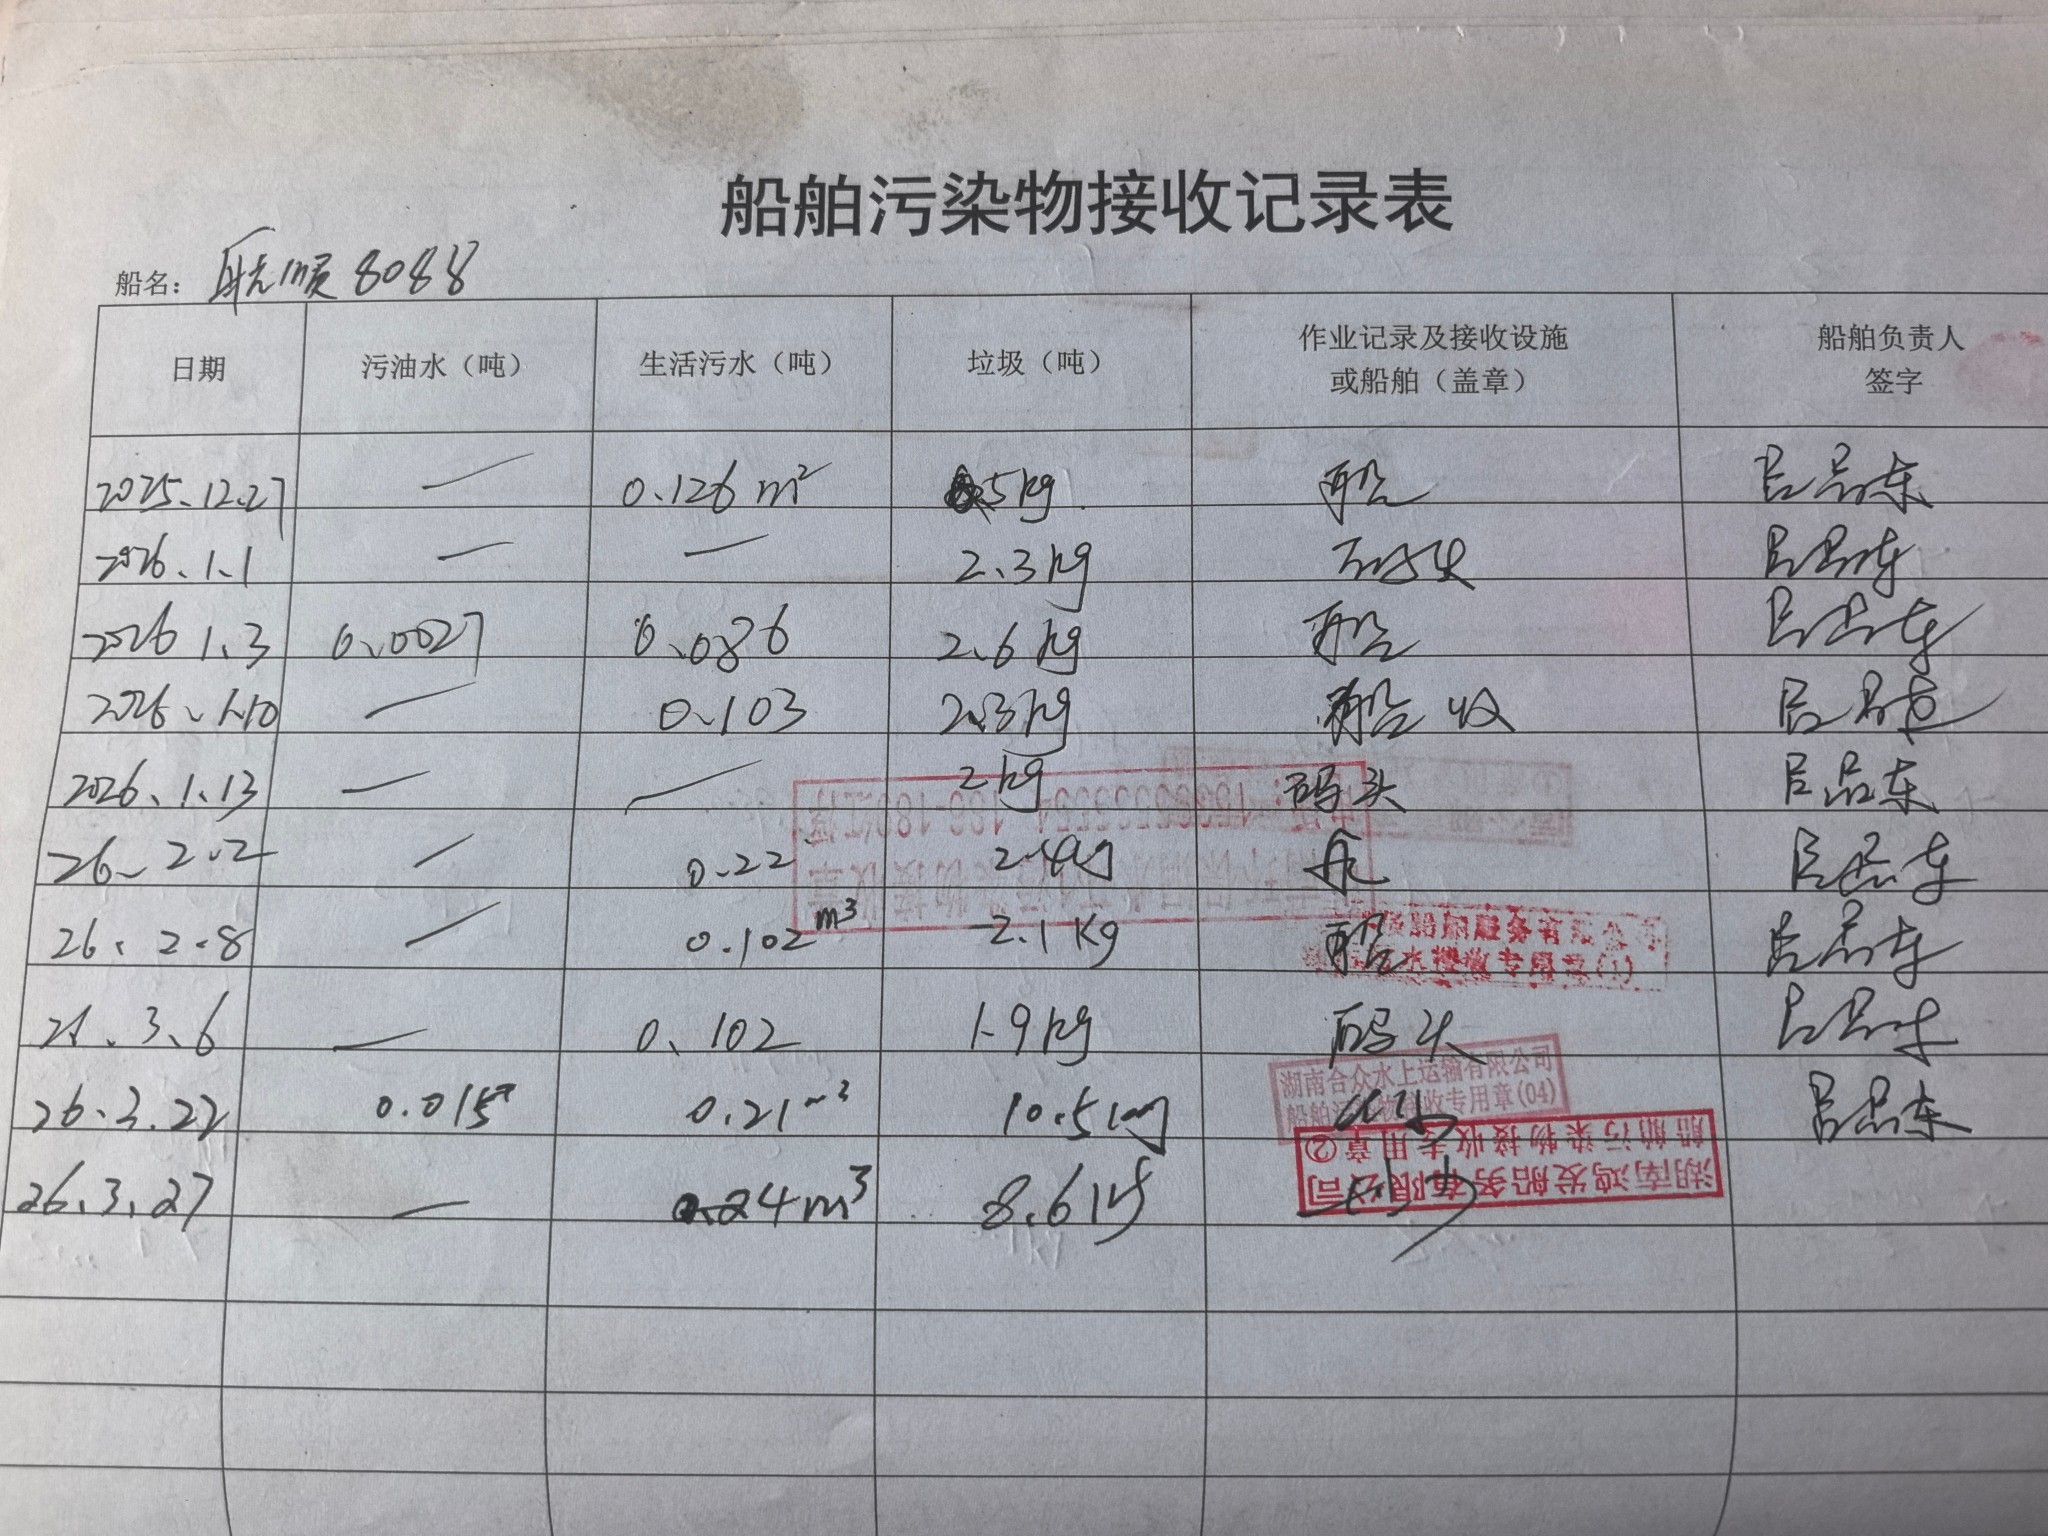 船舶污染物接收记录表
船名: 联顺8088
日期 污油水（吨） 生活污水（吨） 垃圾（吨） 作业记录及接收设施或船舶（盖章） 船舶负责人签字
2025.12.27 — 0.126 m² 5kg 船 吕品东
2026.1.1 — — 2.3kg 码头 吕品东
2026 1.3 0.0027 0.086 2.6kg 船 吕品东
2026.1.10 — 0.103 2.3kg 船收 吕品东
2026.1.13 — — 2kg 码头 吕品东
26.2.2 — 0.22 2.4kg 吕品东
26.2.8 — 0.102m³ 2.1Kg 船 吕品东
26.3.6 — 0.102 1.9kg 码头 吕品东
26.3.22 0.015 0.21m³ 10.5kg 吕品东
湖南合众水上运输有限公司
船舶污染物接收专用章(04)
26.3.27 — 0.24m³ 8.6kg
湖南鸿发船务有限公司
船舶污染物接收专用章②